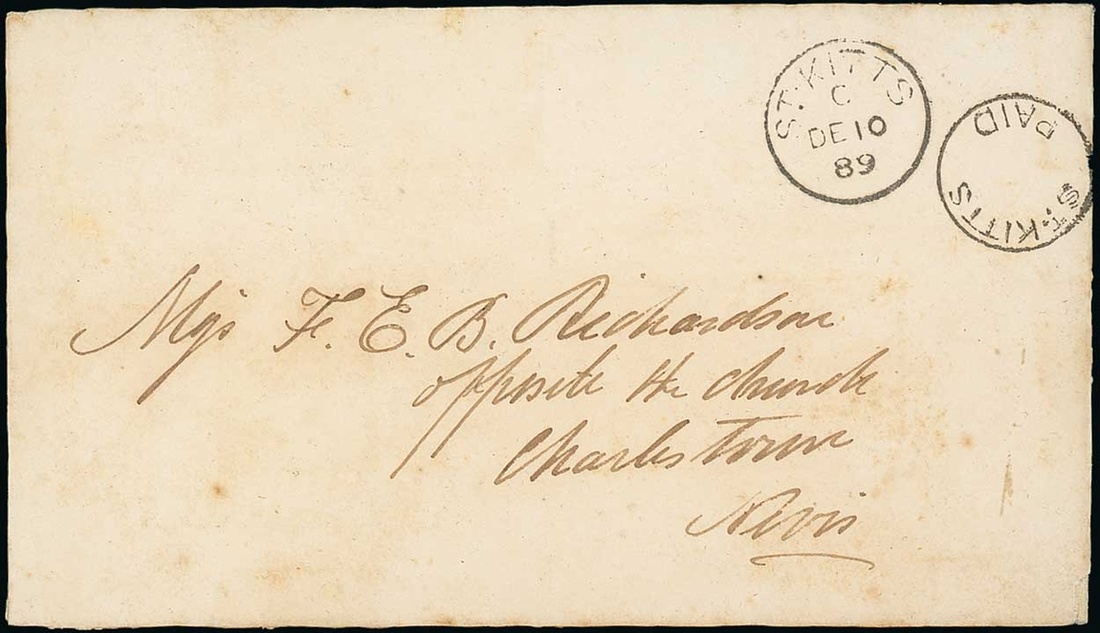 ST. KITTS
C
DE 10
89
PAID
ST. KITTS
Miss F. E. B. Richardson
opposite the church
Charlestown
Nevis